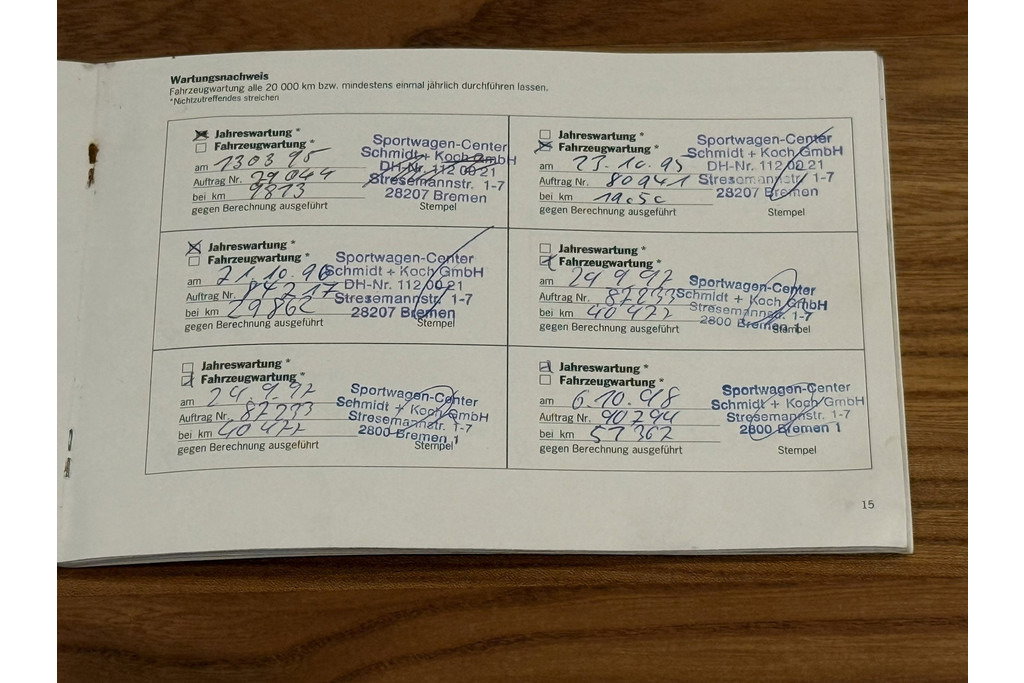 Wartungsnachweis
Fahrzeugwartung alle 20 000 km bzw. mindestens einmal jährlich durchführen lassen.
*Nichtzutreffendes streichen
Jahreswartung *
Fahrzeugwartung *
am 130395
Auftrag Nr. 29044
bei km 9873
gegen Berechnung ausgeführt
Sportwagen-Center
Schmidt + Koch GmbH
DH-Nr. 112 00 21
Stresemannstr. 1-7
28207 Bremen
Stempel
Jahreswartung *
Fahrzeugwartung *
am 23.10.95
Auftrag Nr. 80941
bei km
gegen Berechnung ausgeführt
Sportwagen-Center
Schmidt + Koch GmbH
DH-Nr. 112 00 21
Stresemannstr. 1-7
28207 Bremen
Stempel
Jahreswartung *
Fahrzeugwartung *
am 21.10.96
Auftrag Nr. 84217
bei km 29862
gegen Berechnung ausgeführt
Sportwagen-Center
Schmidt + Koch GmbH
DH-Nr. 112 00 21
Stresemannstr. 1-7
28207 Bremen
Stempel
Jahreswartung *
Fahrzeugwartung *
am 24.9.97
Auftrag Nr. 87233
bei km 40477
gegen Berechnung ausgeführt
Sportwagen-Center
Schmidt + Koch GmbH
Stresemannstr. 1-7
2800 Bremen 1
Stempel
Jahreswartung *
Fahrzeugwartung *
am 24.9.97
Auftrag Nr. 87233
bei km 40477
gegen Berechnung ausgeführt
Sportwagen-Center
Schmidt + Koch GmbH
Stresemannstr. 1-7
2800 Bremen 1
Stempel
Jahreswartung *
Fahrzeugwartung *
am 6.10.98
Auftrag Nr. 90794
bei km 51367
gegen Berechnung ausgeführt
Sportwagen-Center
Schmidt + Koch GmbH
Stresemannstr. 1-7
2800 Bremen 1
Stempel
15